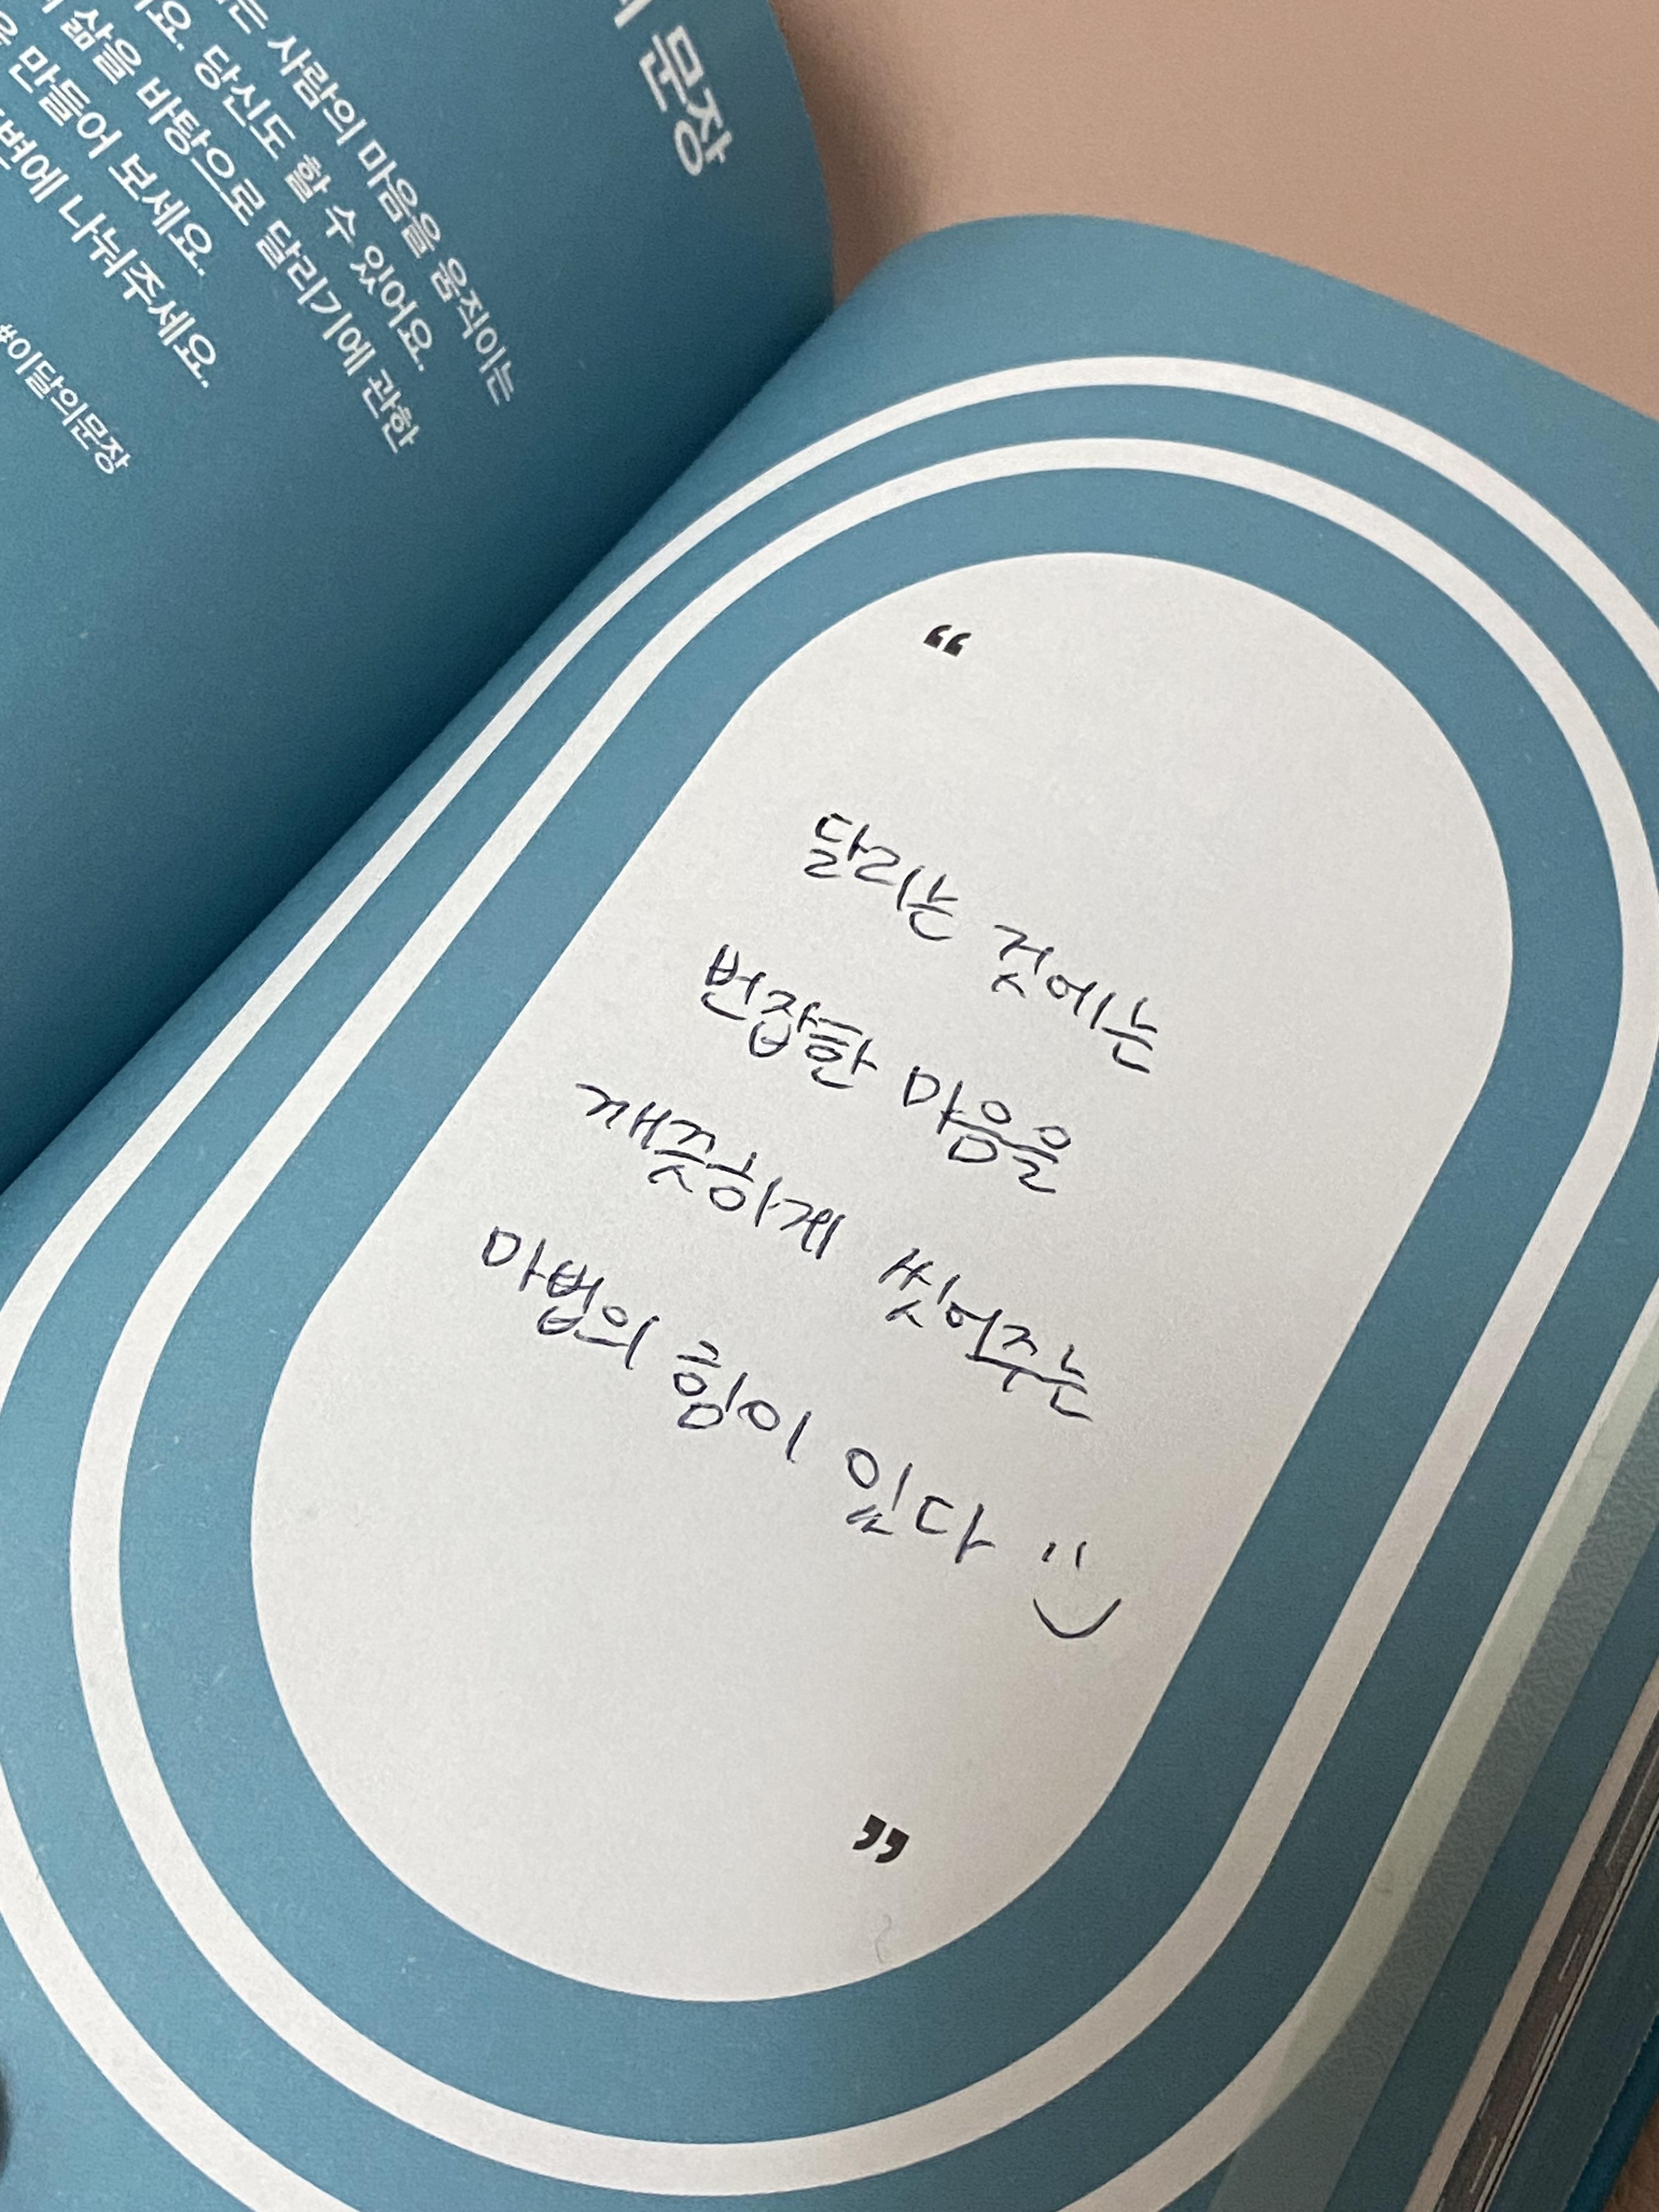 문장
는 사람의 마음을 움직이는
요. 당신도 할 수 있어요.
삶을 바탕으로 달리기에 관한
만들어 보세요.
변에 나눠주세요.
#이달의문장
“
달리는 것에는
번잡한 마음을
깨끗하게 씻어주는
마법의 힘이 있다 :)
”